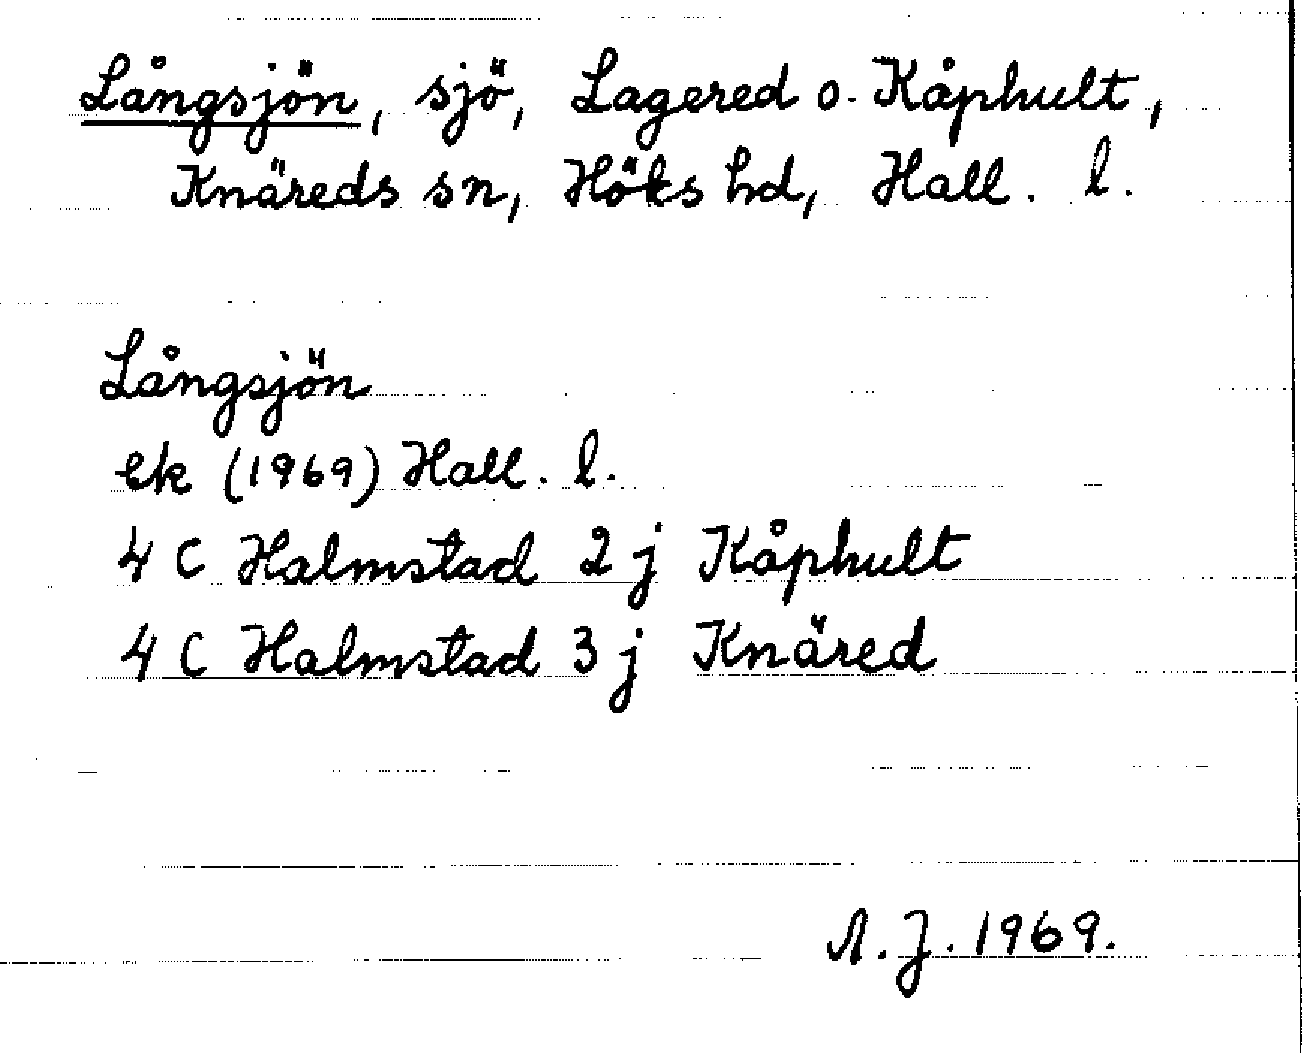 Långsjön, sjö, Lagered o. Kåphult,
Knäreds sn, Höks hd, Hall. l.
Långsjön
ek (1969) Hall. l.
4 C Halmstad 2 j Kåphult
4 C Halmstad 3 j Knäred
A. J. 1969.